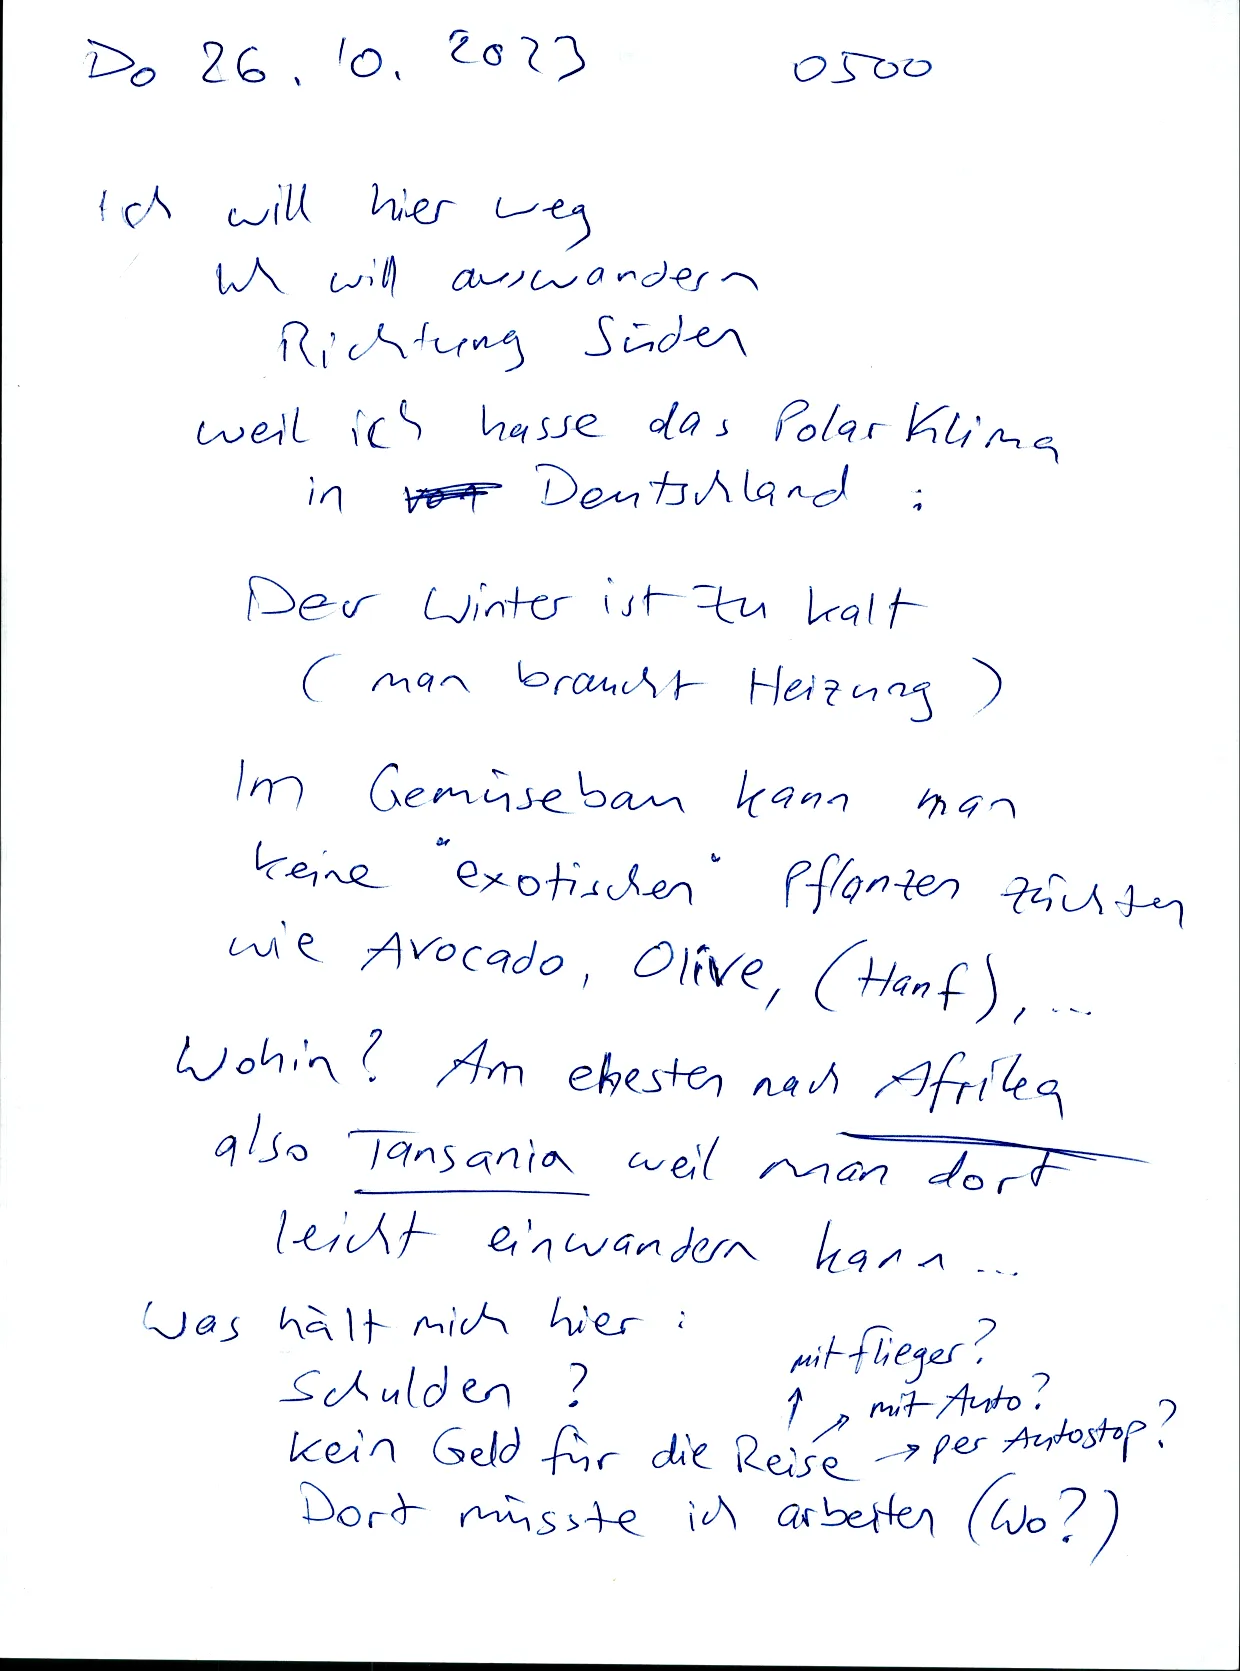 Do 26.10.2023 0500
Ich will hier weg
Ich will auswandern
Richtung Süden
weil ich hasse das Polar Klima
in Deutschland :
Der Winter ist zu kalt
(man braucht Heizung)
Im Gemüsebau kann man
keine "exotischen" Pflanzen züchten
wie Avocado, Olive, (Hanf), ...
Wohin? Am ehesten nach Afrika
also Tansania weil man dort
leicht einwandern kann ...
Was hält mich hier :
mit flieger?
Schulden ?
→ mit Auto?
kein Geld für die Reise → per Autostop?
Dort müsste ich arbeiten (Wo?)